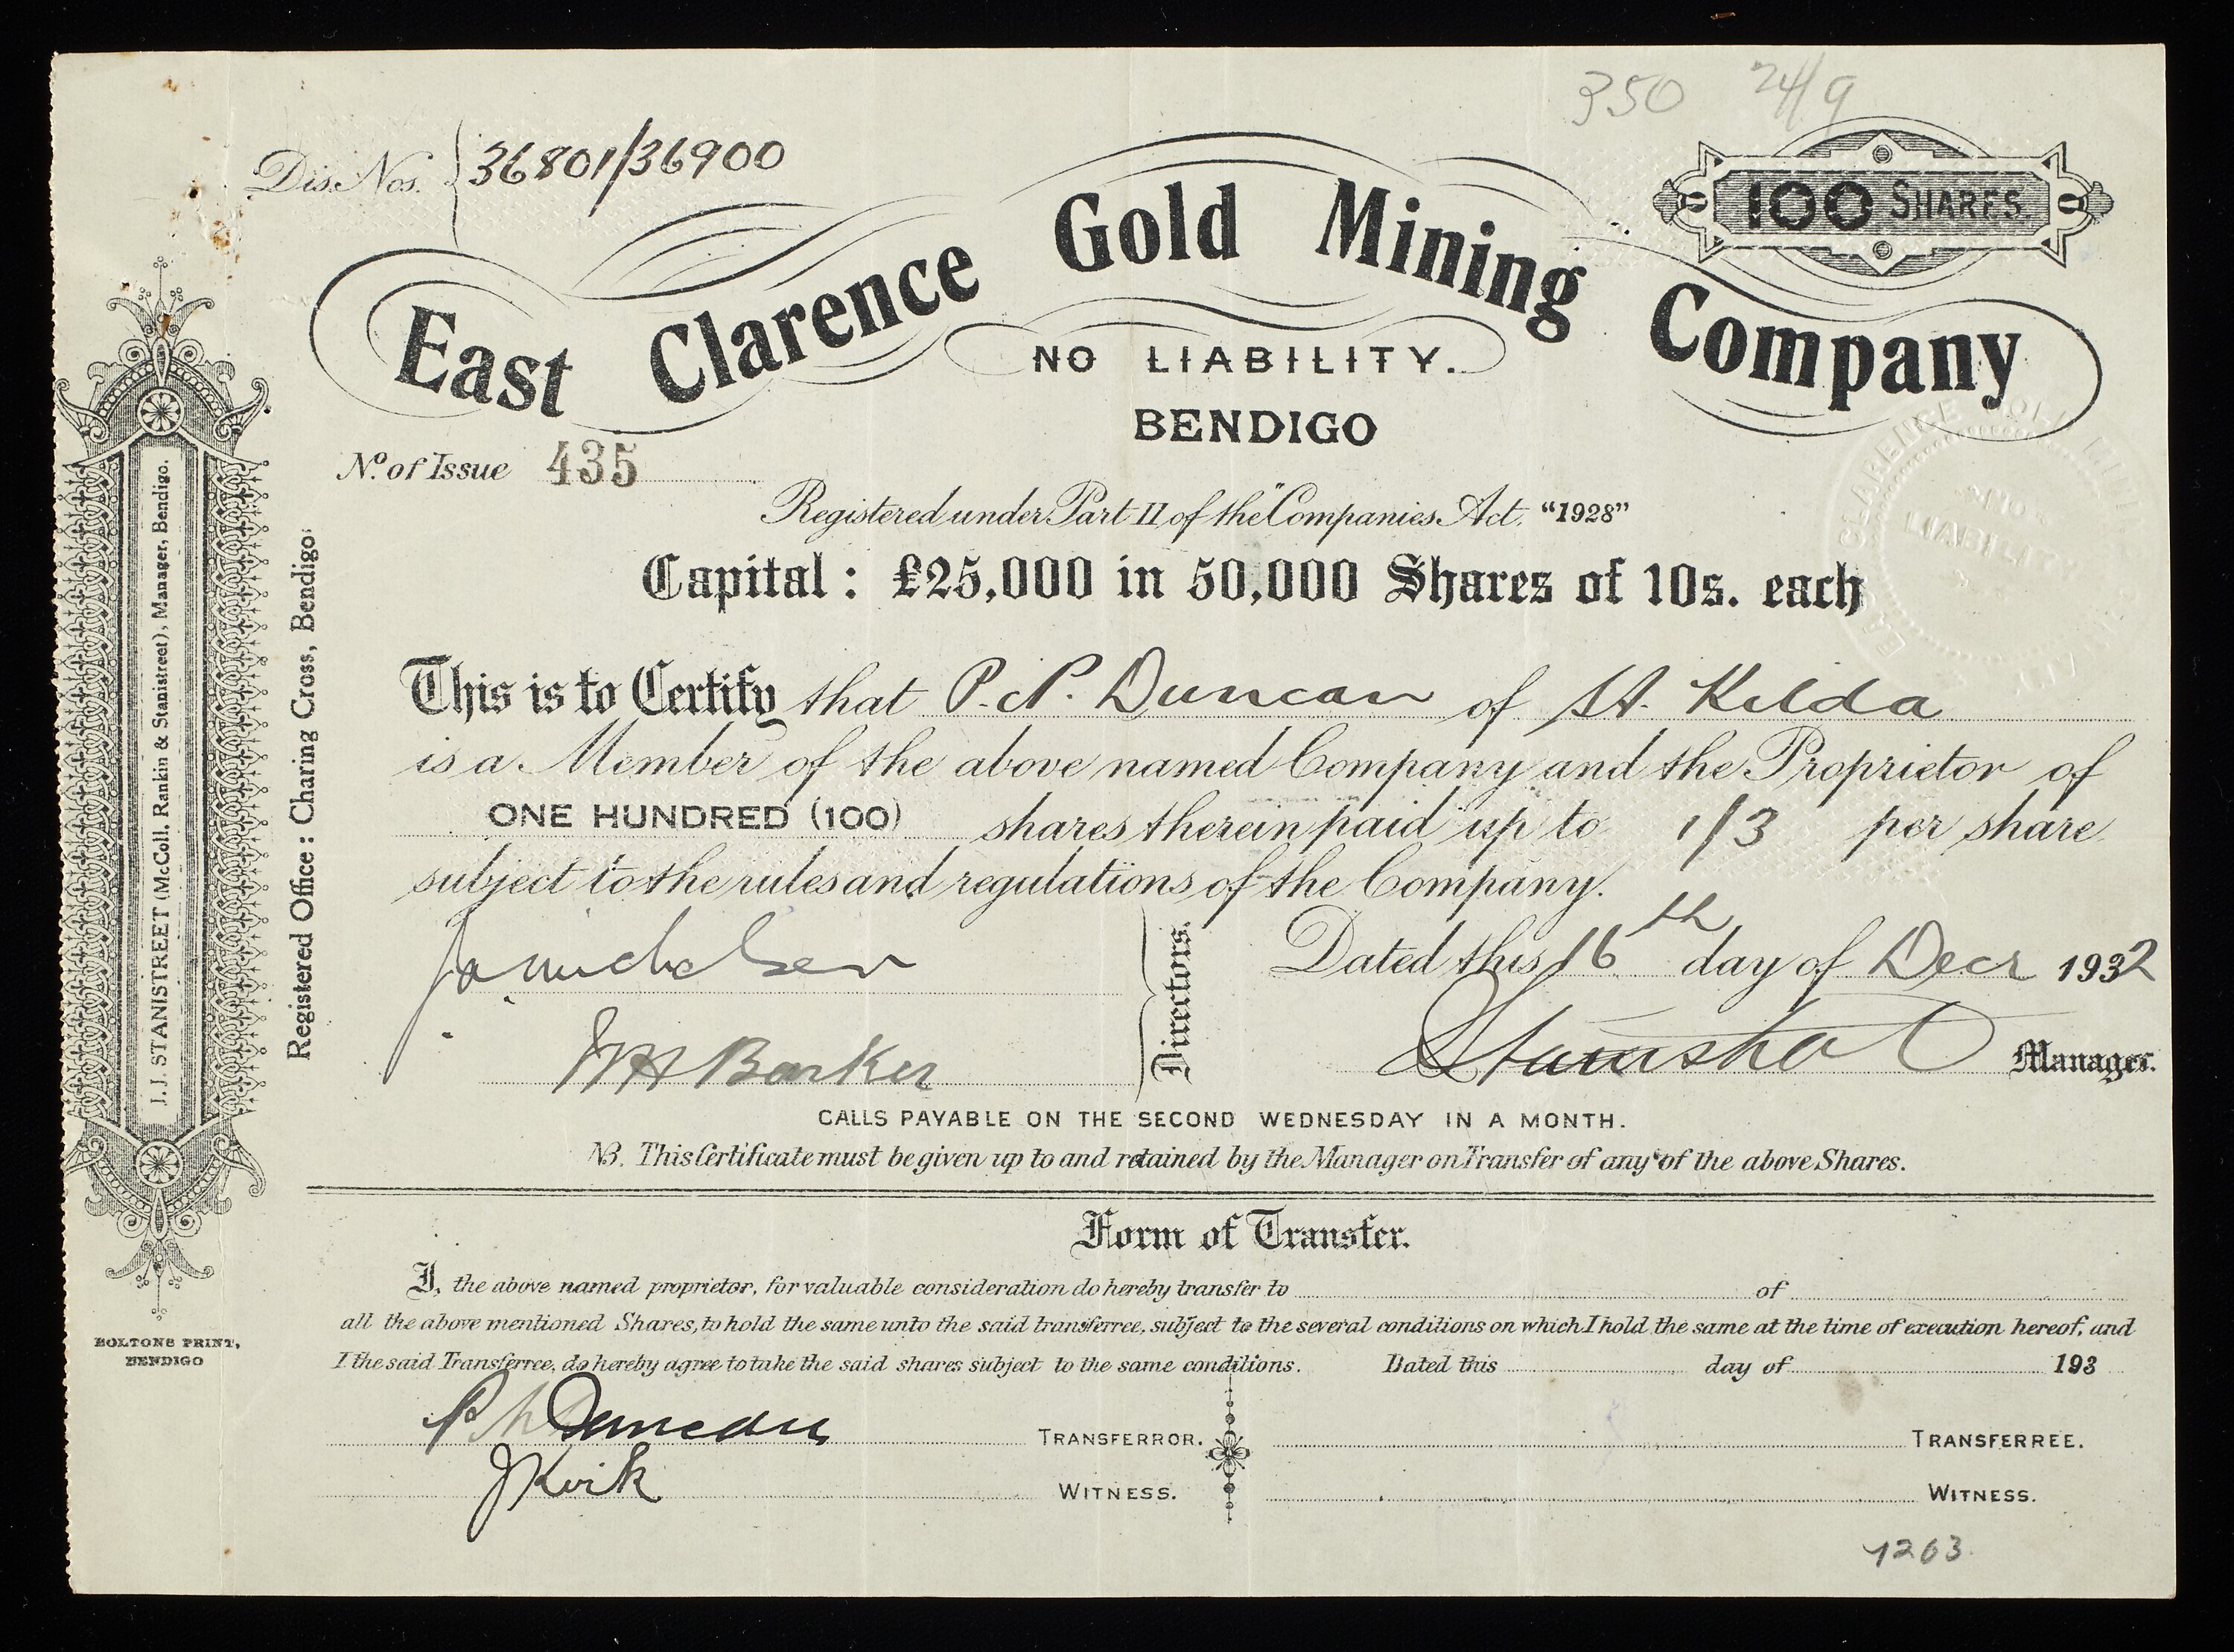 350 24/9
Dis. Nos. 36801/36900
100 SHARES
East Clarence Gold Mining Company
NO LIABILITY.
BENDIGO
No. of Issue 435
Registered under Part II of the "Companies Act. "1928"
Capital: £25,000 in 50,000 Shares of 10s. each
This is to Certify that P. N. Duncan of St. Kilda
is a Member of the above named Company and the Proprietor of
ONE HUNDRED (100) shares therein paid up to 1/3 per share
subject to the rules and regulations of the Company.
Directors.
Dated this 16th day of Decr 1932
Barker
Manager.
CALLS PAYABLE ON THE SECOND WEDNESDAY IN A MONTH.
NB. This Certificate must be given up to and retained by the Manager on Transfer of any of the above Shares.
Form of Transfer.
I, the above named proprietor, for valuable consideration do hereby transfer to of
all the above mentioned Shares, to hold the same unto the said transferree, subject to the several conditions on which I hold the same at the time of execution hereof, and
I the said Transferree, do hereby agree to take the said shares subject to the same conditions. Dated this day of 193
P N Duncan TRANSFERROR. TRANSFERREE.
J Kirk WITNESS. WITNESS.
1263
J. J. STANISTREET (McColl, Rankin & Stanistreet), Manager, Bendigo.
Registered Office: Charing Cross, Bendigo.
BOLTONS PRINT,
BENDIGO
CLARENCE GOLD
NO
LIABILITY